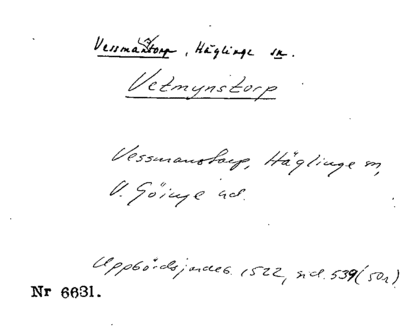 Vessmantorp, Häglinge sn.
Vetmynstorp
Vessmanstorp, Häglinge sn,
V. Göinge hd.
Uppbördsjordeb. 1522, sid. 539 (50n)
Nr 6631.